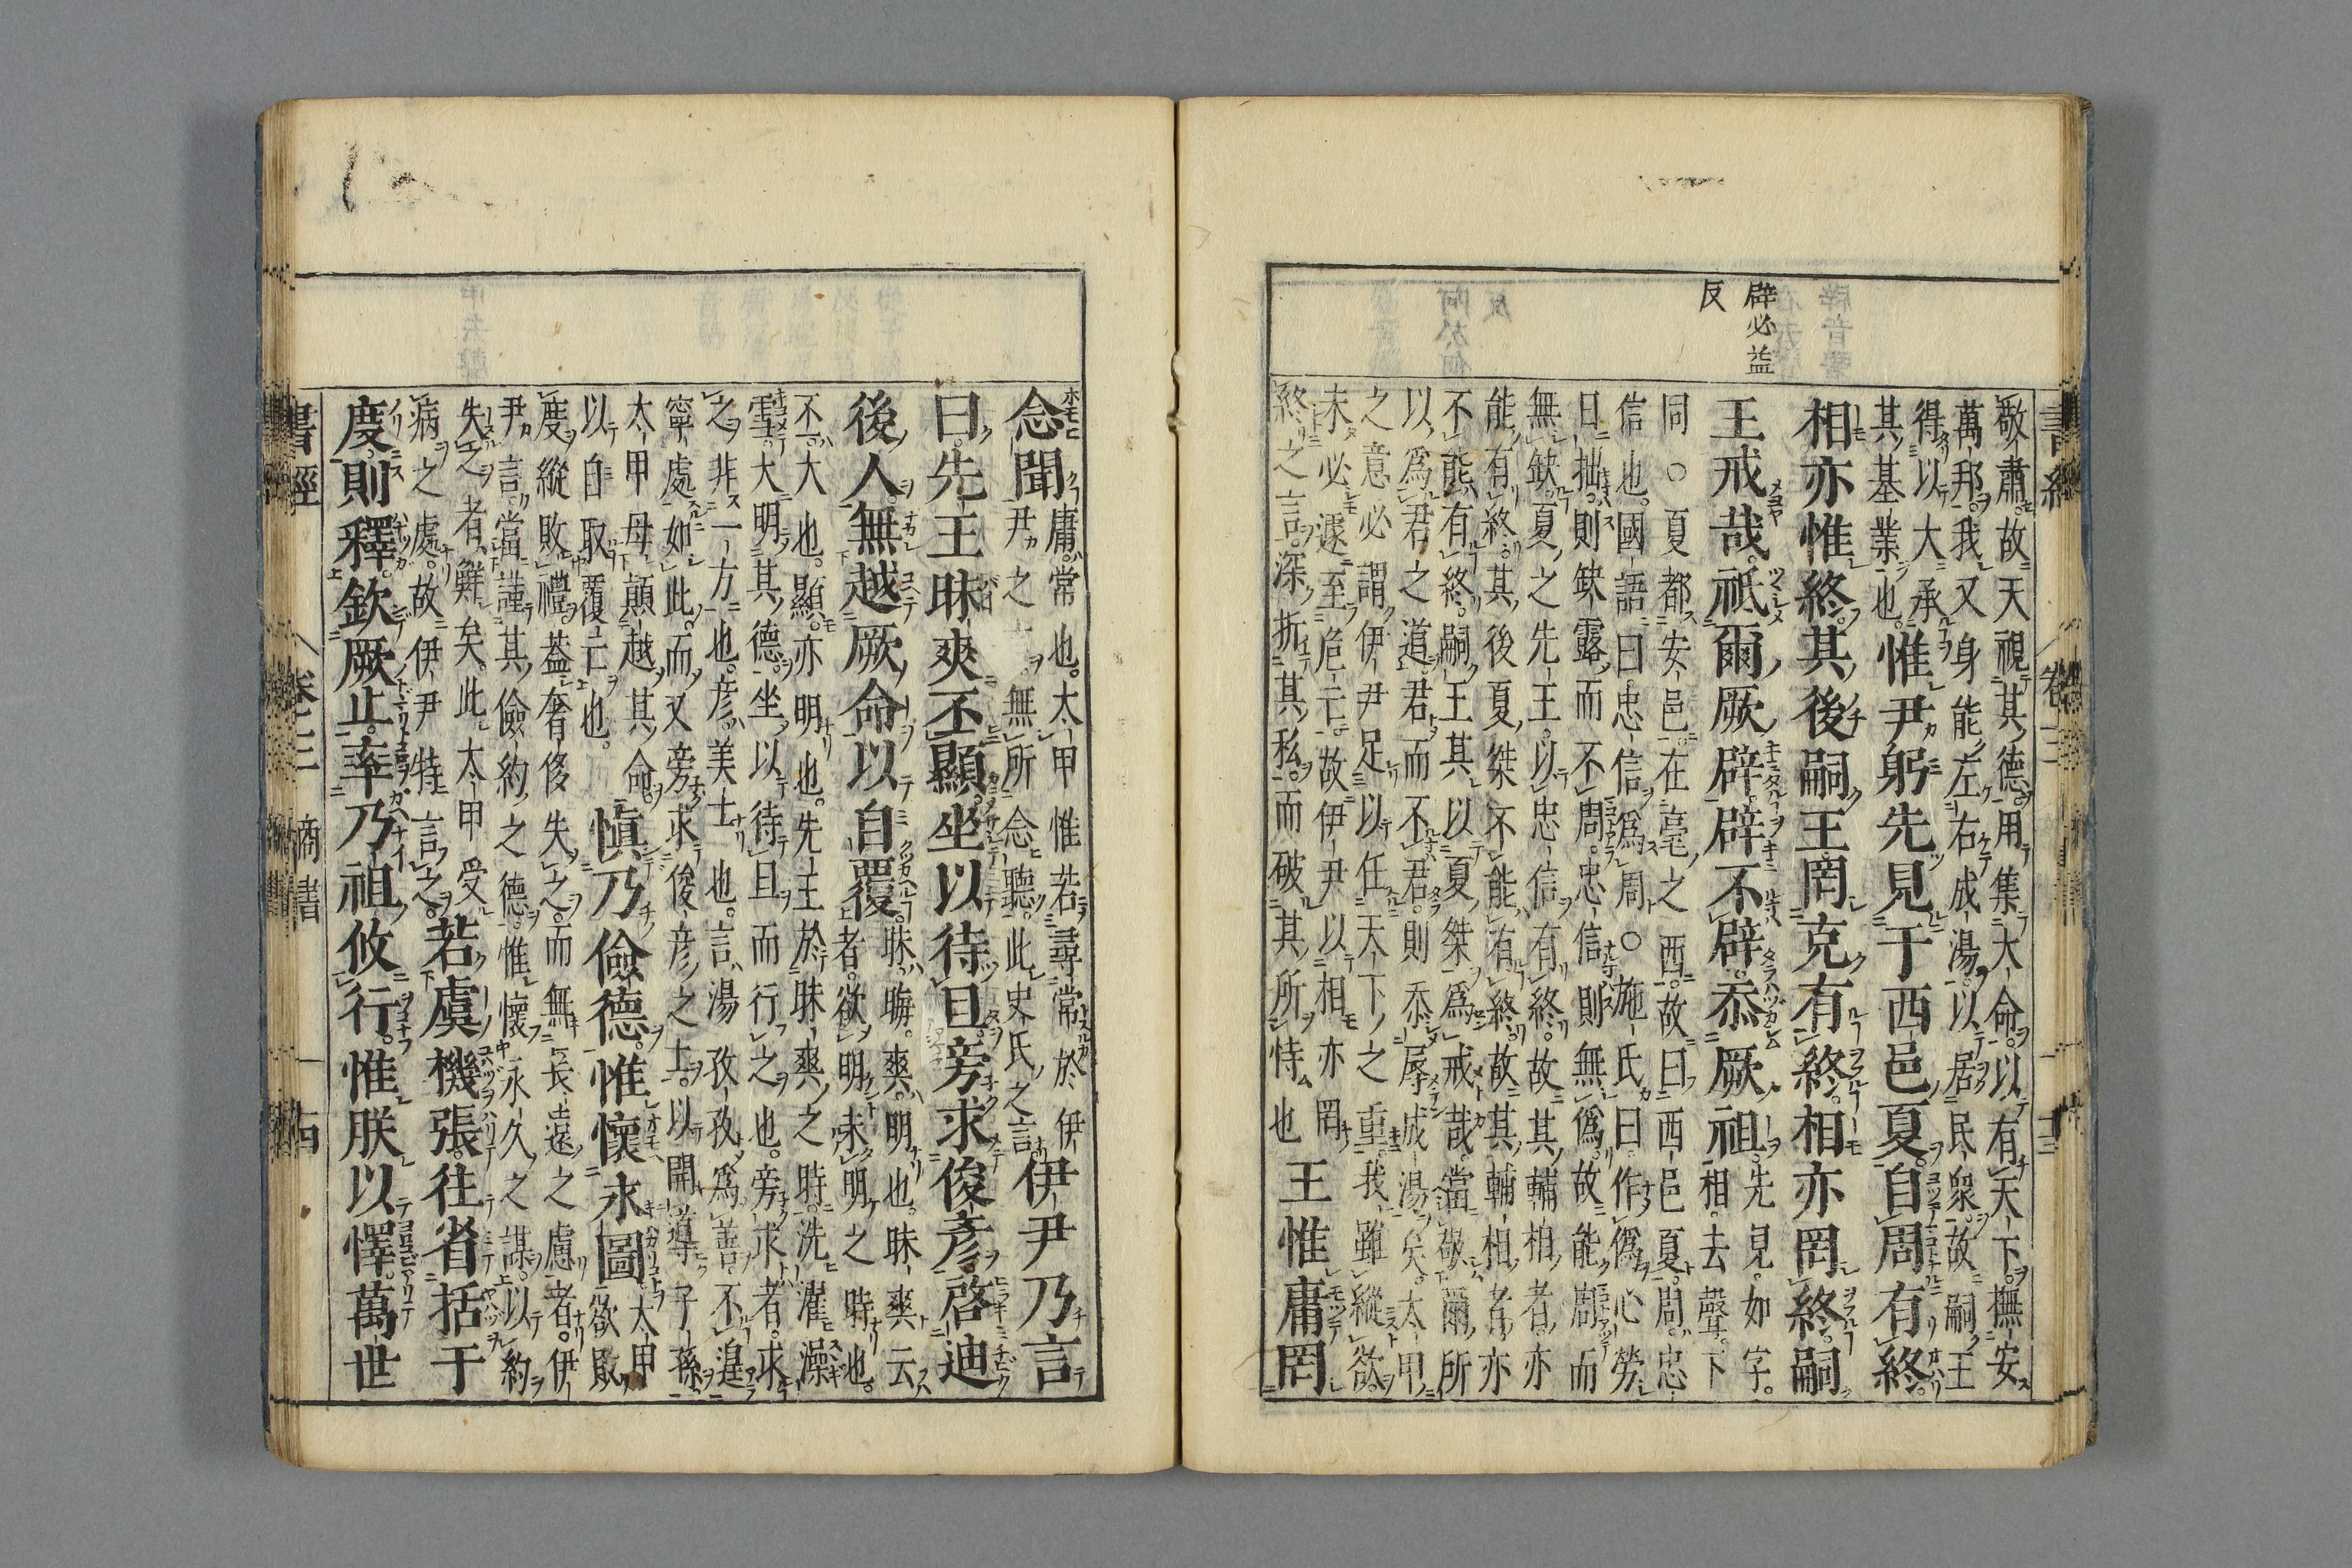 辟必益
反
敬肅故天視其德用集大命以有天下撫安
萬邦我又身能左右成湯以居民衆故嗣王
得以大承
其基業也惟尹躬先見于西邑夏自周有終
相亦惟終其後嗣王罔克有終相亦罔終嗣
王戒哉祗爾厥辟辟不辟忝厥祖
先見如字
相去聲下
同○夏都安邑在亳之西故曰西邑夏周忠
信也國語曰忠信爲周○施氏曰作僞心勞
日拙則缺露而不周忠信則無僞故能周而
無缺夏之先王以忠信有終故其輔相者亦
能有終其後夏桀不能有終故其輔相者亦
不能有終嗣王其以夏桀爲戒哉當敬爾所
以爲君之道君而不君則忝辱成湯矣太甲
之意必謂伊尹足以任天下之重我雖縱欲
未必遽至危亡故伊尹以相亦罔
終之言深折其私而破其所恃也王惟庸罔
念聞
庸常也太甲惟若尋常於伊
尹之言無所念聽此史氏之言
伊尹乃言
曰先王昧爽丕顯坐以待旦旁求俊彥啓迪
後人無越厥命以自覆
昧晦爽明也昧爽云
者欲明未明之時也
不大也顯亦明也先王於昧爽之時洗濯澡
雪大明其德坐以待旦而行之也旁求者求
之非一方也彥美士也言湯孜孜爲善不遑
寧處如此而又旁求俊彥之士以開導子孫
太甲母顛越其命
以自取覆亡也
愼乃儉德惟懷永圖
太甲
欲敗
度縱敗禮蓋奢侈失之而無長遠之慮者伊
尹言當謹其儉約之德惟懷永久之謀以約
失之者鮮矣此太甲受
病之處故伊尹特言之
若虞機張往省括于
度則釋欽厥止率乃祖攸行惟朕以懌萬世
書經　卷三　商書　十四